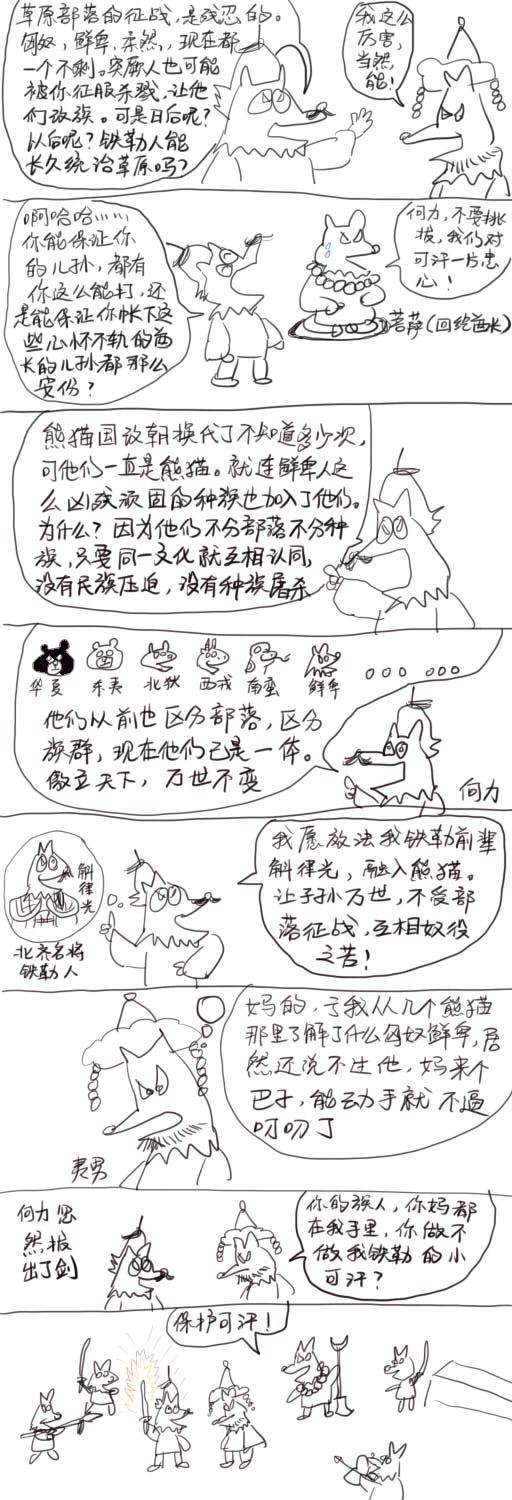 草原部落的征战，是残忍的。
匈奴，鲜卑，柔然，现在都
一个不剩。突厥人也可能
被你征服杀戮，让他
们改族。可是日后呢？
以后呢？铁勒人能
长久统治草原吗？
我这么
厉害，
当然
能！
啊哈哈……
你能保证你
的儿孙，都有
你这么能打，还
是能保证你帐下这
些心怀不轨的酋
长的儿孙都那么
安份？
何力，不要挑
拨，我们对
可汗一片忠
心！
菩萨（回纥酋长）
熊猫国改朝换代了不知道多少次，
可他们一直是熊猫。就连鲜卑人这
么凶残顽固的种族也加入了他们。
为什么？因为他们不分部落不分种
族，只要同一文化就互相认同，
没有民族压迫，没有种族屠杀
华夏
东夷
北狄
西戎
南蛮
鲜卑
他们以前也区分部落，区分
族群，现在他们已是一体。
傲立天下，万世不变
何力
斛律光
北齐名将
铁勒人
我愿效法我铁勒前辈
斛律光，融入熊猫。
让子孙万世，不受部
落征战，互相奴役
之苦！
妈的，亏我从几个熊猫
那里了解了什么匈奴鲜卑，居
然还说不过他，妈来个
巴子，能动手就不逼
叨叨了
夷男
何力忽
然拔
出了剑
你的族人，你妈都
在我手里，你做不
做我铁勒的小
可汗？
保护可汗！